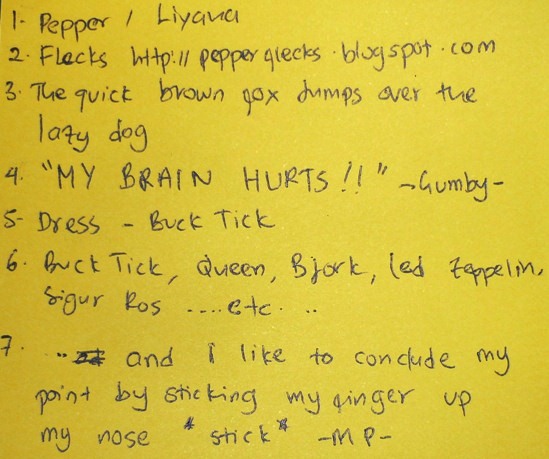 1- Pepper / Liyana
2. Flecks http:// pepperflecks.blogspot.com
3. The quick brown fox jumps over the
lazy dog
4. "MY BRAIN HURTS !!" -Gumby-
5- Dress - Buck Tick
6. Buck Tick, Queen, Bjork, led Zeppelin,
Sigur Ros ....etc. ..
7. .. and I like to conclude my
point by sticking my finger up
my nose *stick* -MP-